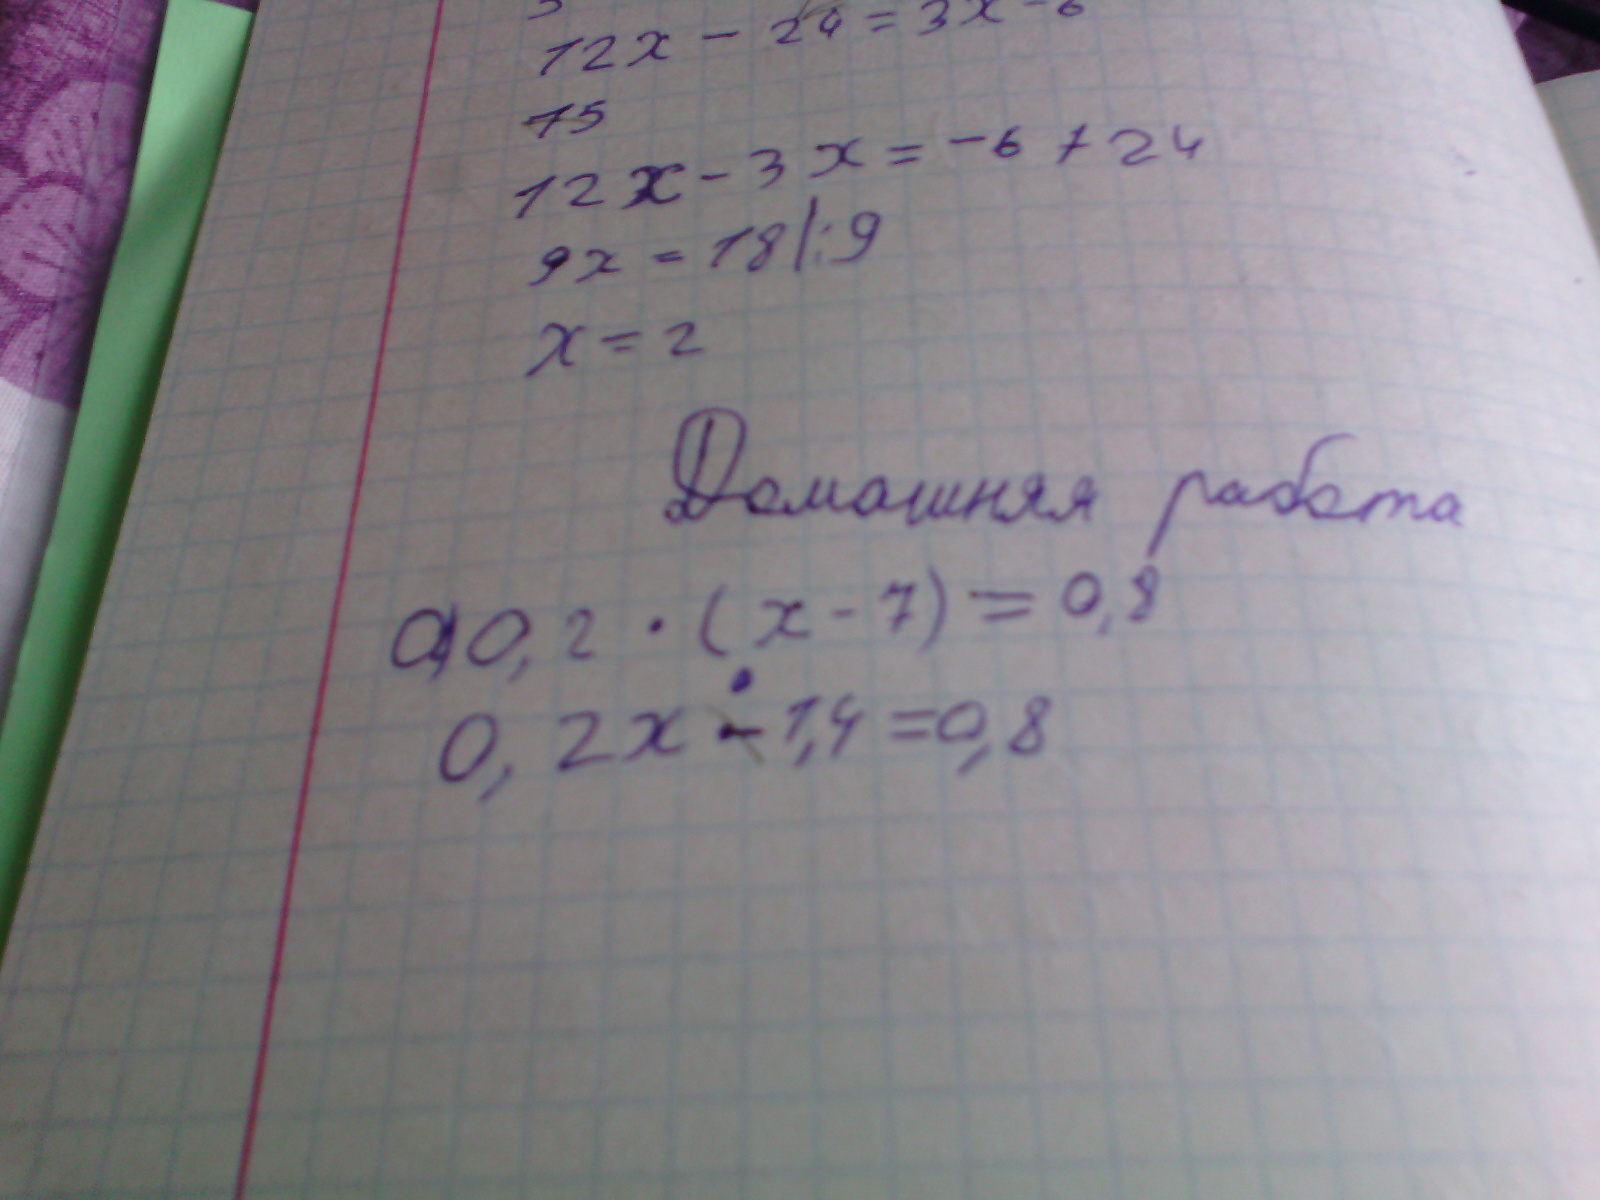 12x - 24 = 3x - 6
75
12x - 3x = -6 + 24
9x = 18 |:9
x = 2
Домашняя работа
а) 0,2 · (x - 7) = 0,8
0,2x - 1,4 = 0,8